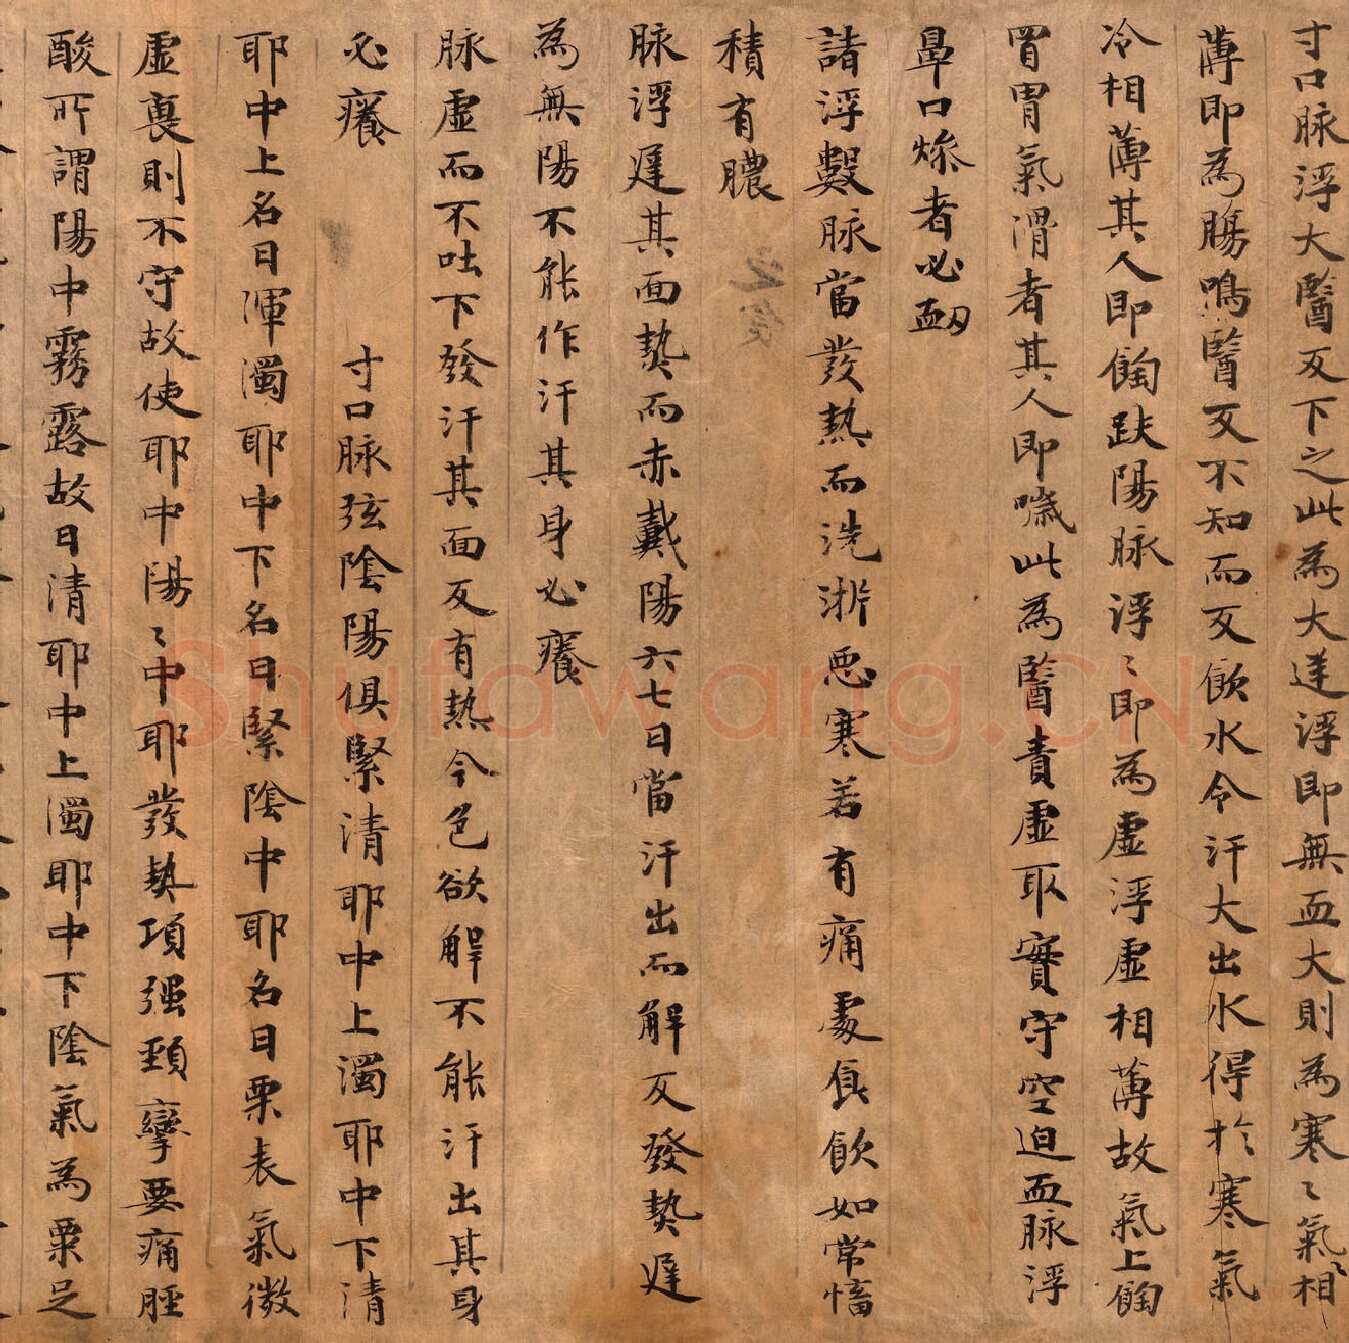 寸口脉浮大醫反下之此為大逆浮即無血大則為寒〻氣相
薄即為腸鳴醫反不知而反飲水令汗大出水得於寒氣
冷相薄其人即䭇趺陽脉浮〻即為虛浮虛相薄故氣上䭇
胃氣滑者其人即噦此為醫責虛取實守空迫血脉浮
鼻口燥者必衂
諸浮數脉當發熱而洗淅惡寒若有痛處食飲如常慉
積有膿
脉浮遲其面熱而赤戴陽六七日當汗出而解反發熱遲
為無陽不能作汗其身必癢
脉虛而不吐下發汗其面反有熱令色欲解不能汗出其身
必癢 寸口脉弦陰陽俱緊清耶中上濁耶中下清
耶中上名曰渾濁耶中下名曰緊陰中耶名曰栗表氣微
虛裏則不守故使耶中陽〻中耶發熱項强頸攣要痛脛
酸所謂陽中霧露故曰清耶中上濁耶中下陰氣為栗足
Shufawang.CN